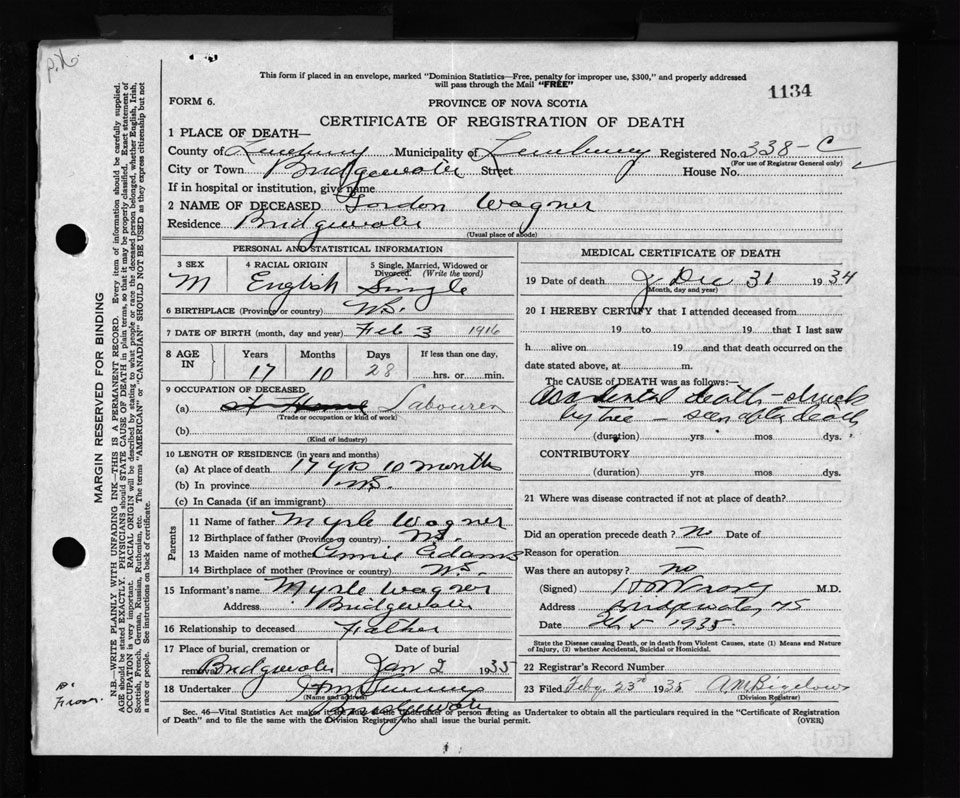 This form if placed in an envelope, marked "Dominion Statistics—Free, penalty for improper use, $300," and properly addressed
will pass through the Mail "FREE"
1134
FORM 6.
PROVINCE OF NOVA SCOTIA
CERTIFICATE OF REGISTRATION OF DEATH
1 PLACE OF DEATH—
County of Lunenburg Municipality of Lunenburg Registered No. 338-C
(For use of Registrar General only)
City or Town Bridgewater Street House No.
If in hospital or institution, give name
2 NAME OF DECEASED Gordon Wagner
Residence Bridgewater
(Usual place of abode)
PERSONAL AND STATISTICAL INFORMATION
3 SEX 4 RACIAL ORIGIN 5 Single, Married, Widowed or Divorced. (Write the word)
M English Single
6 BIRTHPLACE (Province or country) N.S.
7 DATE OF BIRTH (month, day and year) Feb 3 1916
8 AGE IN Years Months Days If less than one day,
17 10 28 hrs. or min.
9 OCCUPATION OF DECEASED
(a) At Home Labourer
(Trade or occupation or kind of work)
(b)
(Kind of industry)
10 LENGTH OF RESIDENCE (in years and months)
(a) At place of death 17 yrs 10 months
(b) In province N.S.
(c) In Canada (if an immigrant)
Parents
11 Name of father Myrle Wagner
12 Birthplace of father (Province or country) N.S.
13 Maiden name of mother Annie Adams
14 Birthplace of mother (Province or country) N.S.
15 Informant's name Myrle Wagner
Address Bridgewater
16 Relationship to deceased Father
17 Place of burial, cremation or removal Date of burial
Bridgewater Jan 2 1935
18 Undertaker
(Name and address)
Bridgewater
MEDICAL CERTIFICATE OF DEATH
19 Date of death Dec 31 1934
(Month, day and year)
20 I HEREBY CERTIFY that I attended deceased from
19 to 19 that I last saw
h alive on 19 and that death occurred on the
date stated above, at m.
The CAUSE OF DEATH was as follows:—
Accidental death - struck
by tree — seen after death
(duration) yrs mos dys.
CONTRIBUTORY
(duration) yrs. mos. dys.
21 Where was disease contracted if not at place of death?
Did an operation precede death? No Date of
Reason for operation —
Was there an autopsy? no
(Signed) M.D.
Address Bridgewater NS
Date Feb 5 1935
State the Disease causing Death, or in death from Violent Causes, state (1) Means and Nature
of Injury, (2) whether Accidental, Suicidal or Homicidal.
22 Registrar's Record Number
23 Filed Feby 23rd 1935 A M Bigelow
Division Registrar
Sec. 46—Vital Statistics Act makes it the duty of the Undertaker or person acting as Undertaker to obtain all the particulars required in the "Certificate of Registration
of Death" and to file the same with the Division Registrar who shall issue the burial permit. (OVER)
MARGIN RESERVED FOR BINDING
N.B.—WRITE PLAINLY WITH UNFADING INK—THIS IS A PERMANENT RECORD. Every item of information should be carefully supplied.
AGE should be stated EXACTLY. PHYSICIANS should STATE CAUSE OF DEATH in plain terms, so that it may be properly classified. Exact statement of
OCCUPATION is very important. RACIAL ORIGIN will be described by stating to what people or race the deceased person belonged, whether English, Irish,
Scottish, French, German, Russian, Ruthenian, etc. The terms "AMERICAN" or "CANADIAN" SHOULD NOT BE USED as they express citizenship but not
a race or people. See instructions on back of certificate.